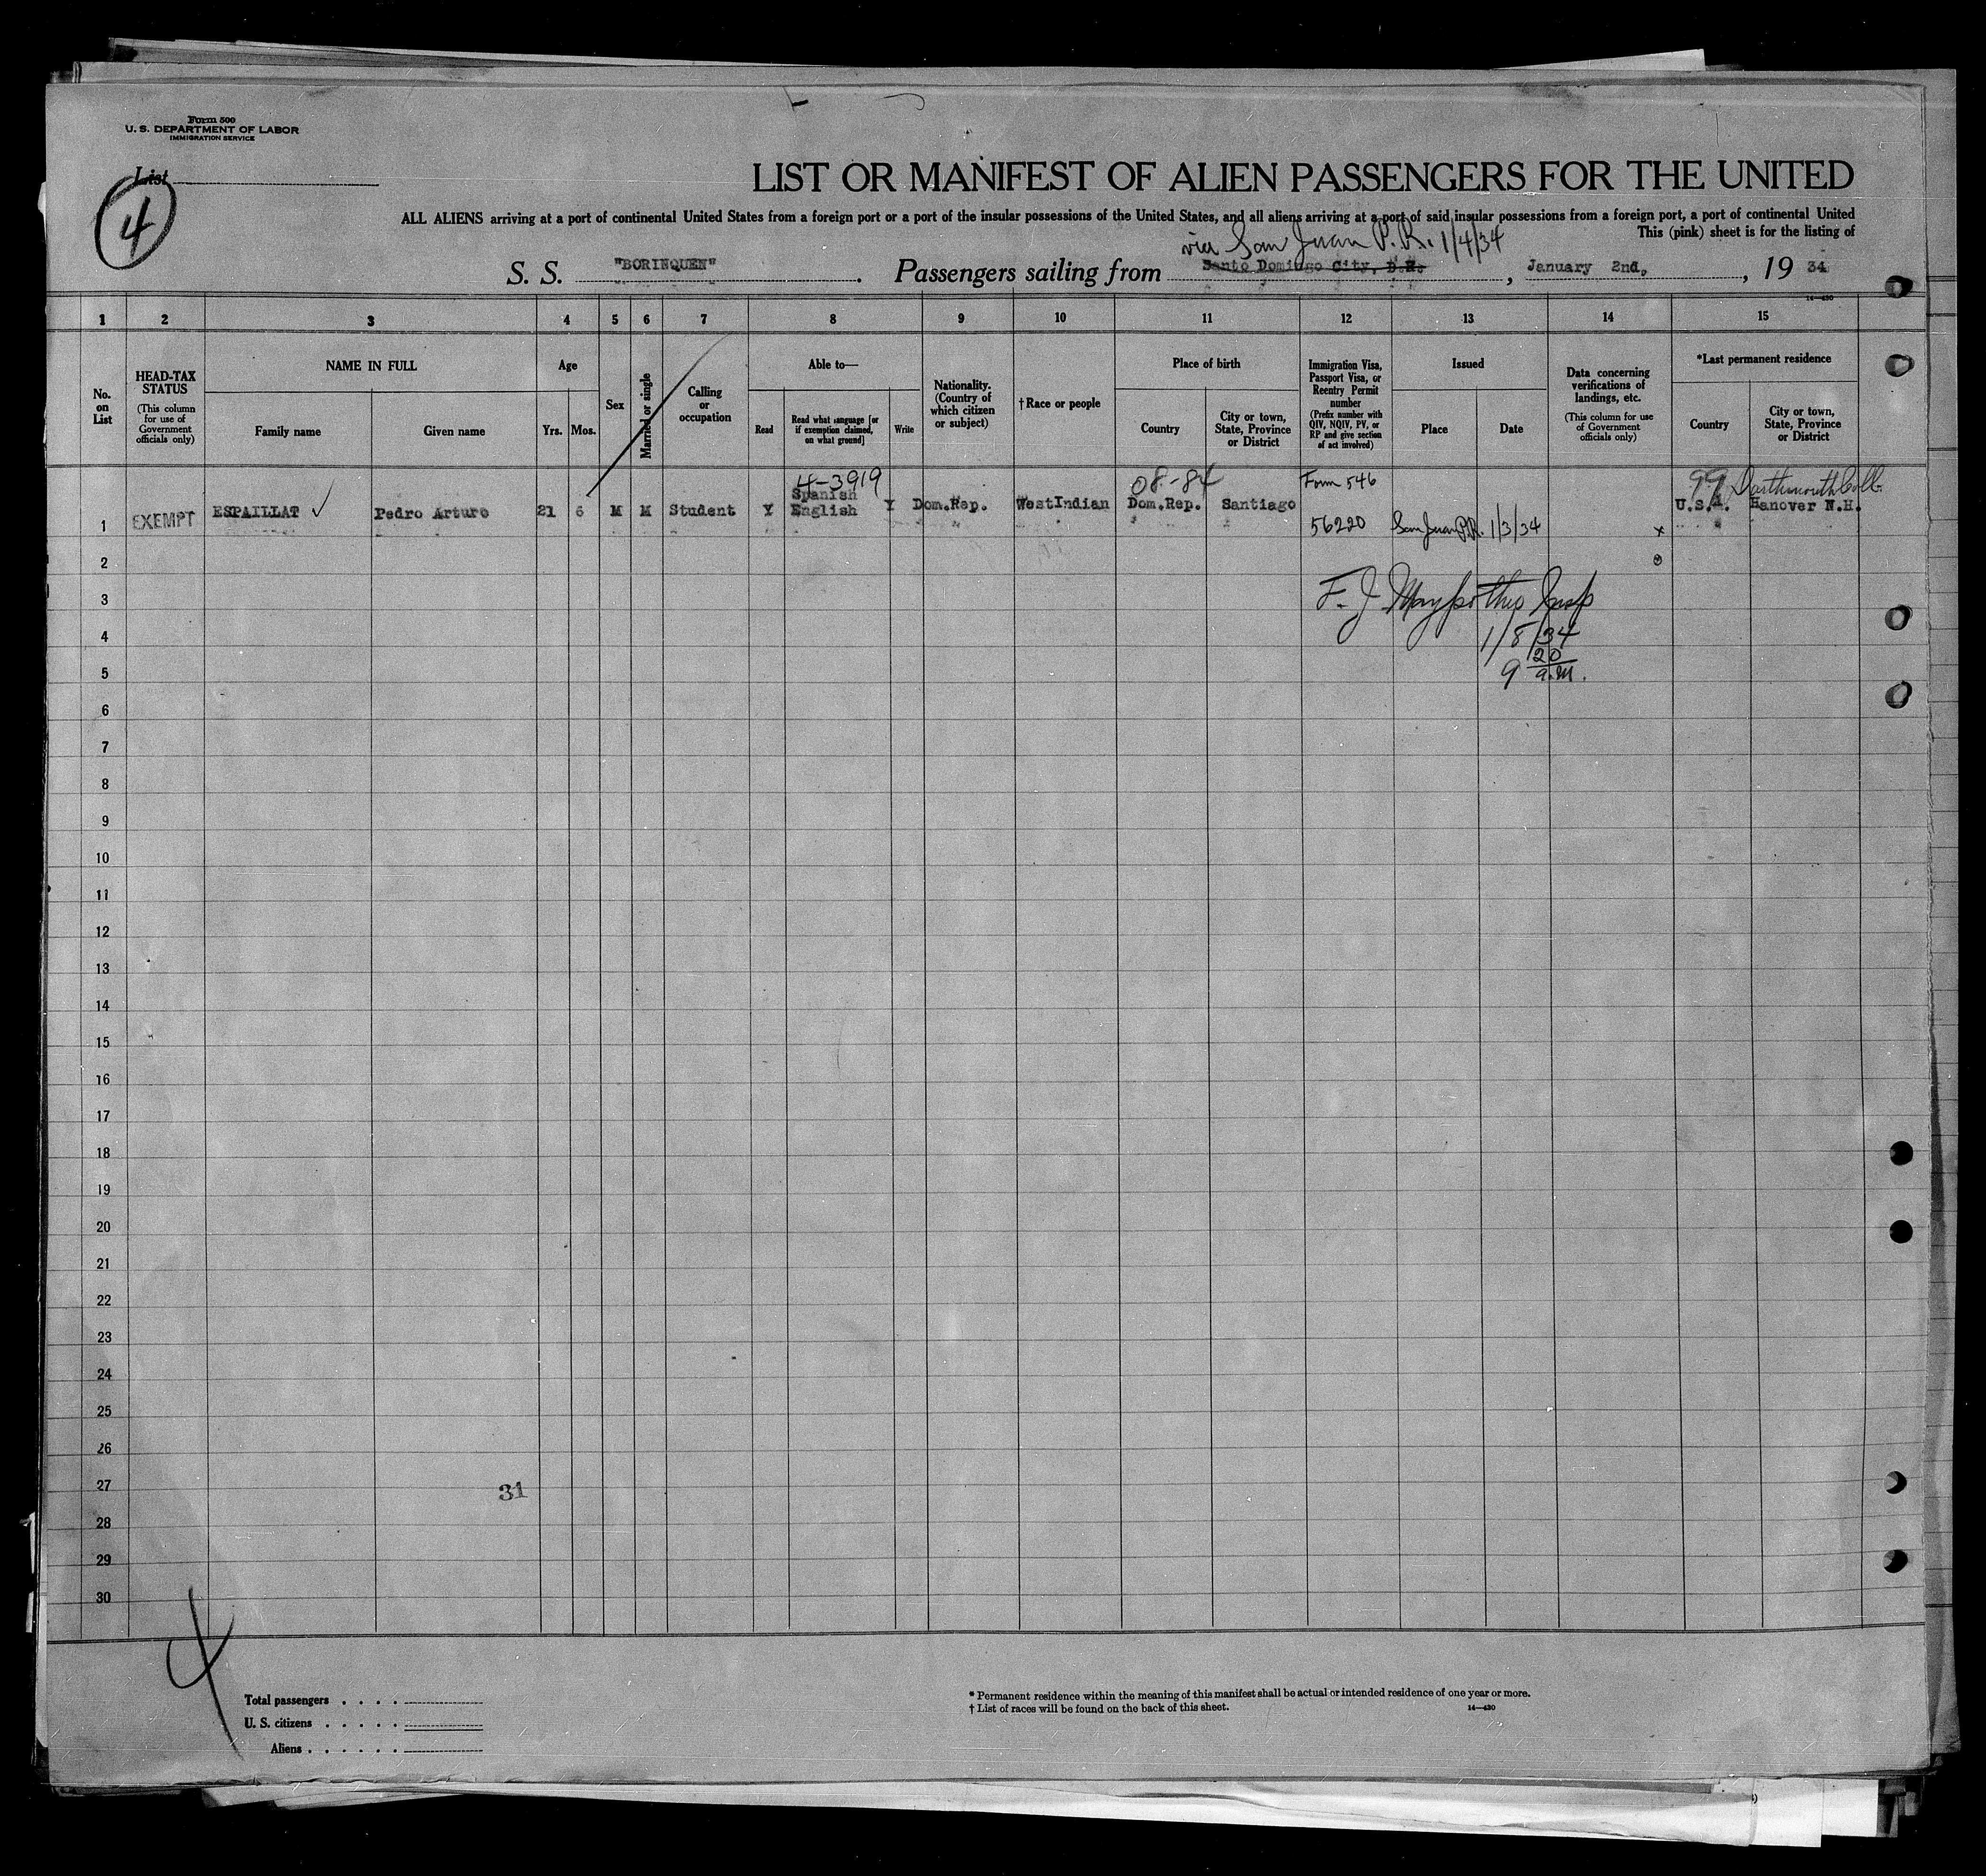 Form 500
U. S. DEPARTMENT OF LABOR
IMMIGRATION SERVICE
List
4
LIST OR MANIFEST OF ALIEN PASSENGERS FOR THE UNITED
ALL ALIENS arriving at a port of continental United States from a foreign port or a port of the insular possessions of the United States, and all aliens arriving at a port of said insular possessions from a foreign port, a port of continental United
This (pink) sheet is for the listing of
via San Juan P. R. 1/4/34
S. S. "BORINQUEN". Passengers sailing from Santo Domingo City, D.R., January 2nd, , 19 34
14—430
1 2 3 4 5 6 7 8 9 10 11 12 13 14 15
No. on List
HEAD-TAX STATUS
(This column for use of Government officials only)
NAME IN FULL
Family name
Given name
Age
Yrs.
Mos.
Sex
Married or single
Calling or occupation
Able to—
Read
Read what language [or if exemption claimed, on what ground]
Write
Nationality. (Country of which citizen or subject)
†Race or people
Place of birth
Country
City or town, State, Province or District
Immigration Visa, Passport Visa, or Reentry Permit number
(Prefix number with QIV, NQIV, PV, or RP and give section of act involved)
Issued
Place
Date
Data concerning verifications of landings, etc.
(This column for use of Government officials only)
*Last permanent residence
Country
City or town, State, Province or District
4-3919 08-84 Form 546 99 Darthmouth Coll.
Spanish
1 EXEMPT ESPAILLAT ✓ Pedro Arturo 21 6 M M Student Y English Y Dom.Rep. WestIndian Dom.Rep. Santiago U.S.A. Hanover N.H.
56220 San Juan P.R. 1/3/34 x
2
3 F. J. Insp
4 1/8/34
5 9 20 a.m.
6
7
8
9
10
11
12
13
14
15
16
17
18
19
20
21
22
23
24
25
26
27 31
28
29
30
4
Total passengers . . . .
U. S. citizens . . . . .
Aliens . . . . . .
* Permanent residence within the meaning of this manifest shall be actual or intended residence of one year or more.
† List of races will be found on the back of this sheet.
14—430